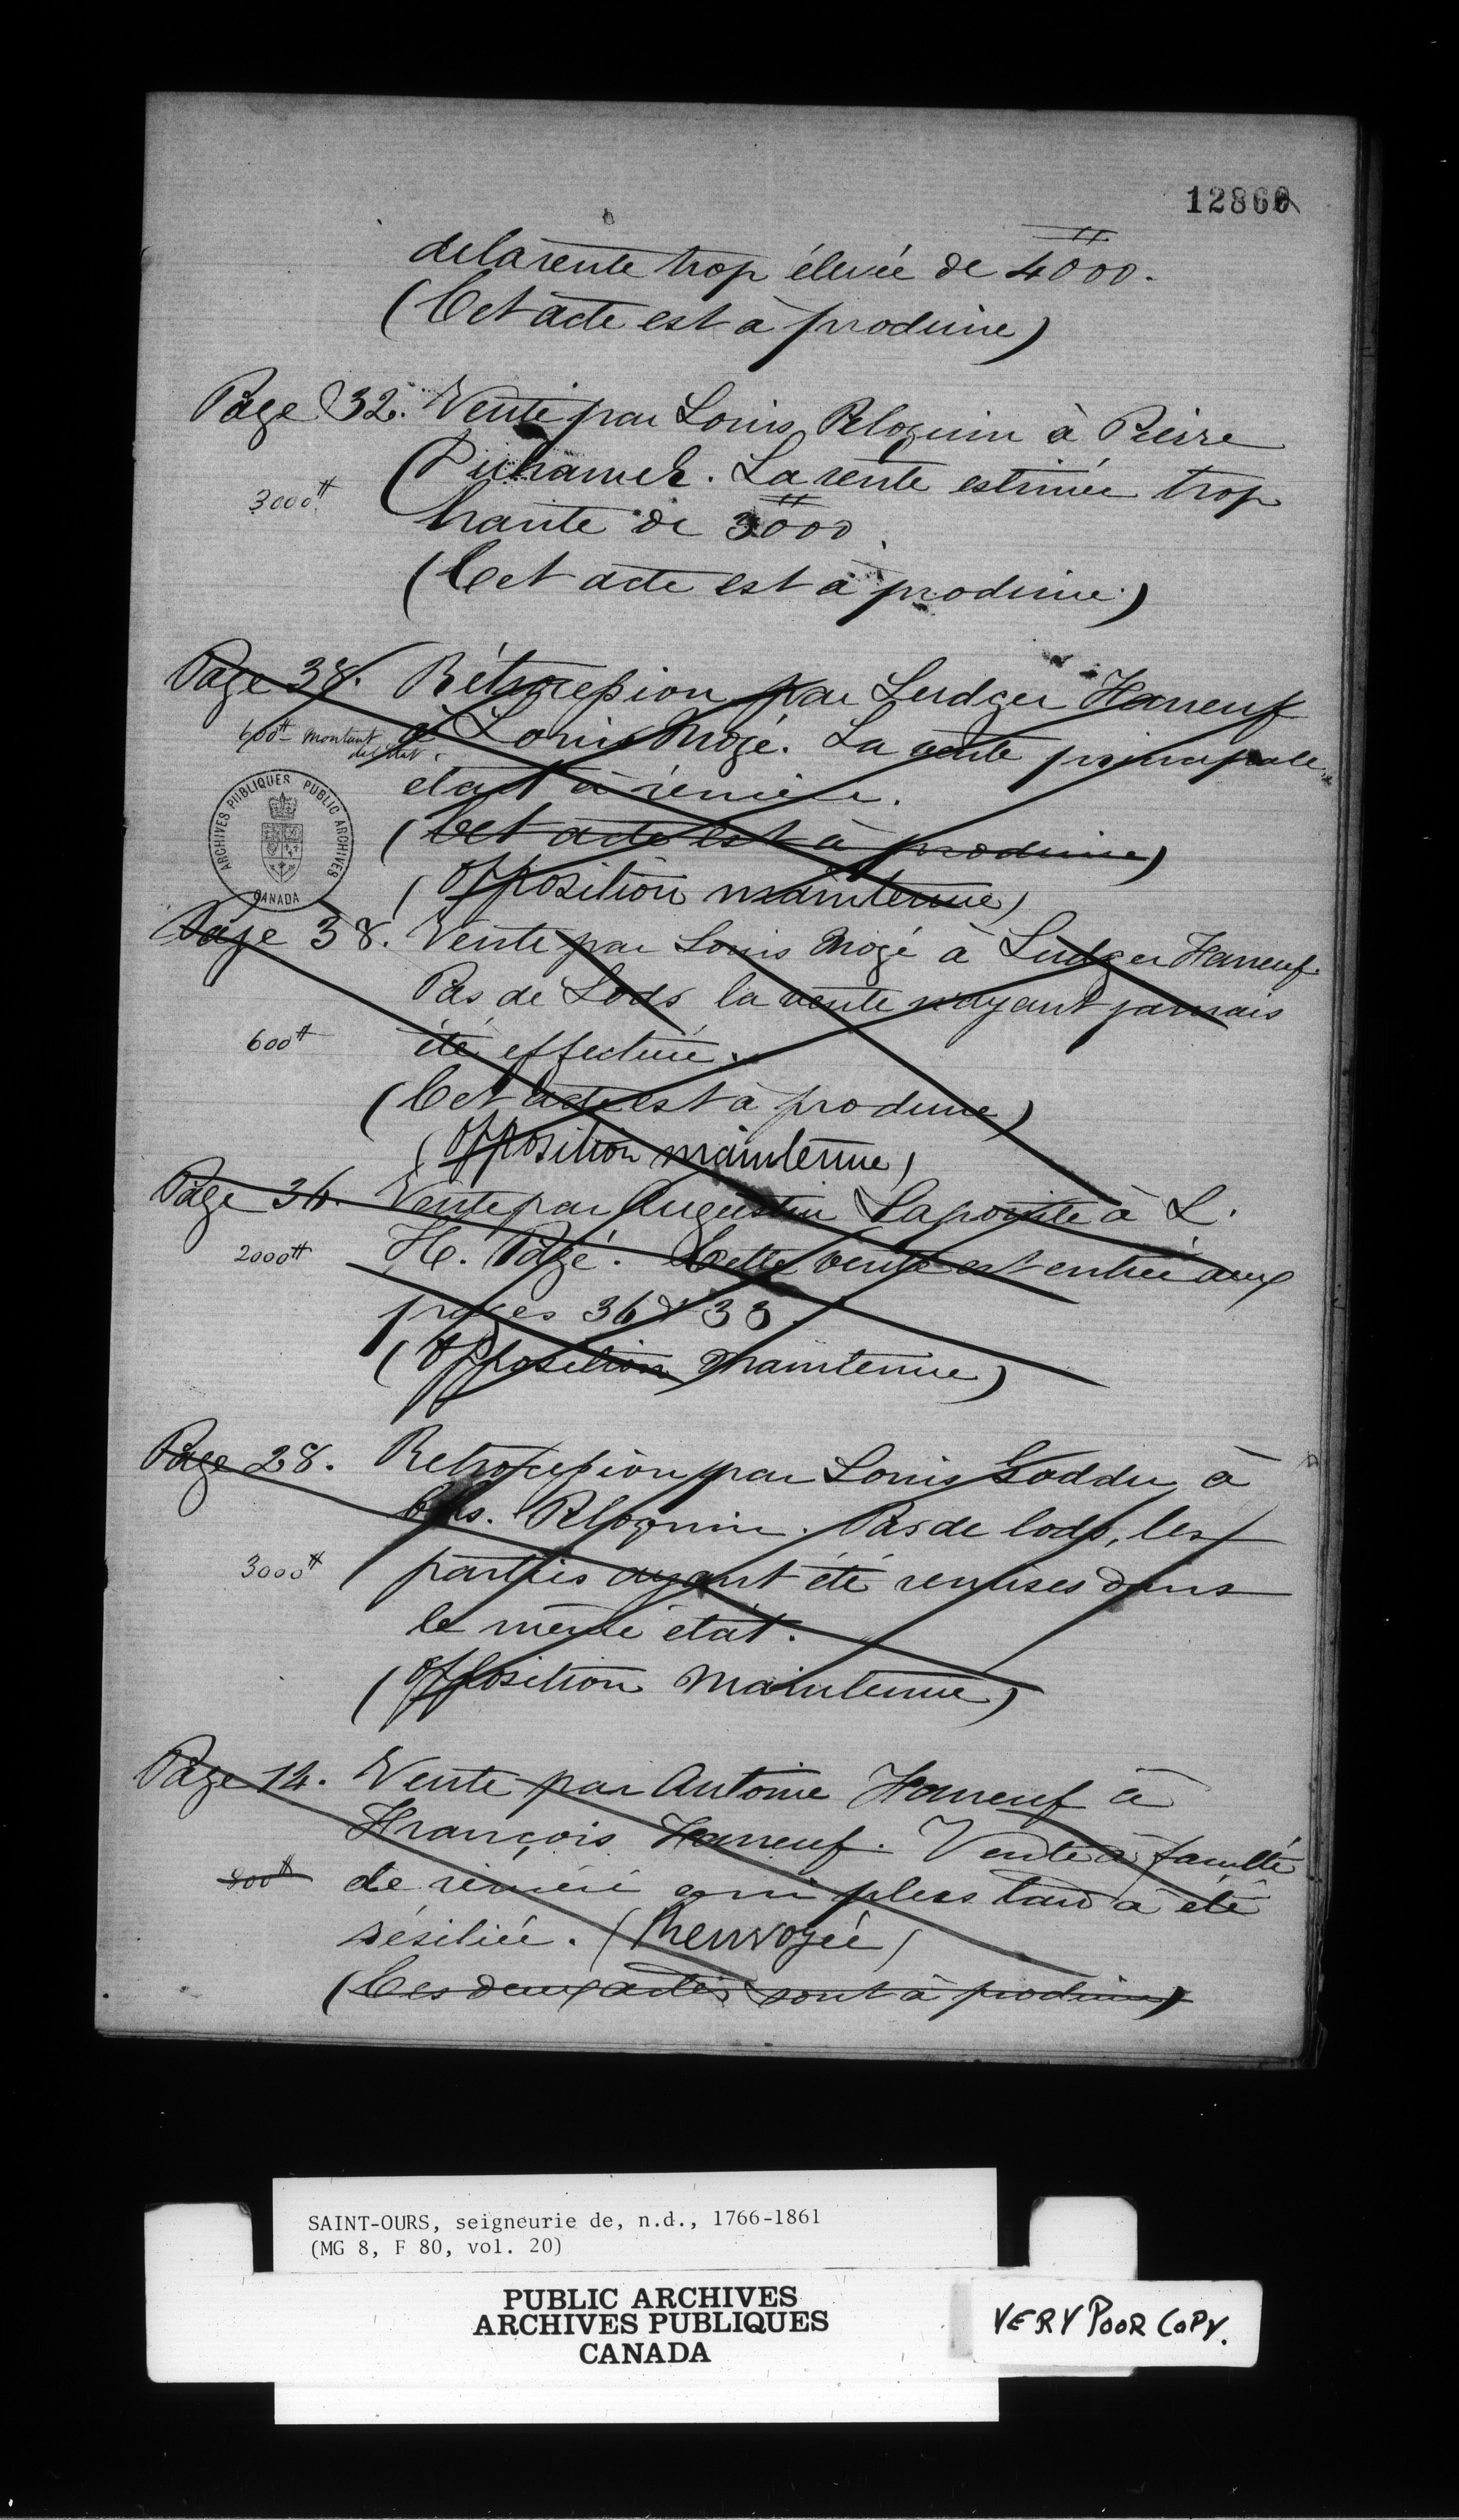 12860
de la rente trop élevée de 4000.
(Cet acte est à produire)
Page 32. Vente par Louis Peloquin à Pierre
Duhamel. La rente estimée trop
3000#
haute de 3000
(Cet acte est à produire)
Page 38. Rétrocession par Ludger Haneuf
600# montant
à Louis Mogé. La vente principale
était à réméré.
(Cet acte est à produire)
(Opposition maintenue)
ARCHIVES PUBLIQUES PUBLIC ARCHIVES
CANADA
Page 38. Vente par Louis Mogé à Ludger Haneuf
Pas de Lods la vente n'ayant jamais
600# été effectuée.
(Cet acte est à produire)
(Opposition maintenue)
Page 36. Vente par Augustin Lapointe à L.
2000# H. Pagé. Cette vente est entrée aux
pages 36 & 33.
(Opposition maintenue)
Page 28. Retrocession par Louis Gaddu à
Chs. Peloquin. Pas de lods, les
3000# parties ayant été remises dans
le même état.
(Opposition Maintenue)
Page 14. Vente par Antoine Haneuf à
François Haneuf. Vente à faculté
800# de réméré qui plus tard a été
résiliée. (Renvoyée)
(Ces deux actes sont à produire)
SAINT-OURS, seigneurie de, n.d., 1766-1861
(MG 8, F 80, vol. 20)
PUBLIC ARCHIVES
ARCHIVES PUBLIQUES
CANADA
VERY POOR COPY.